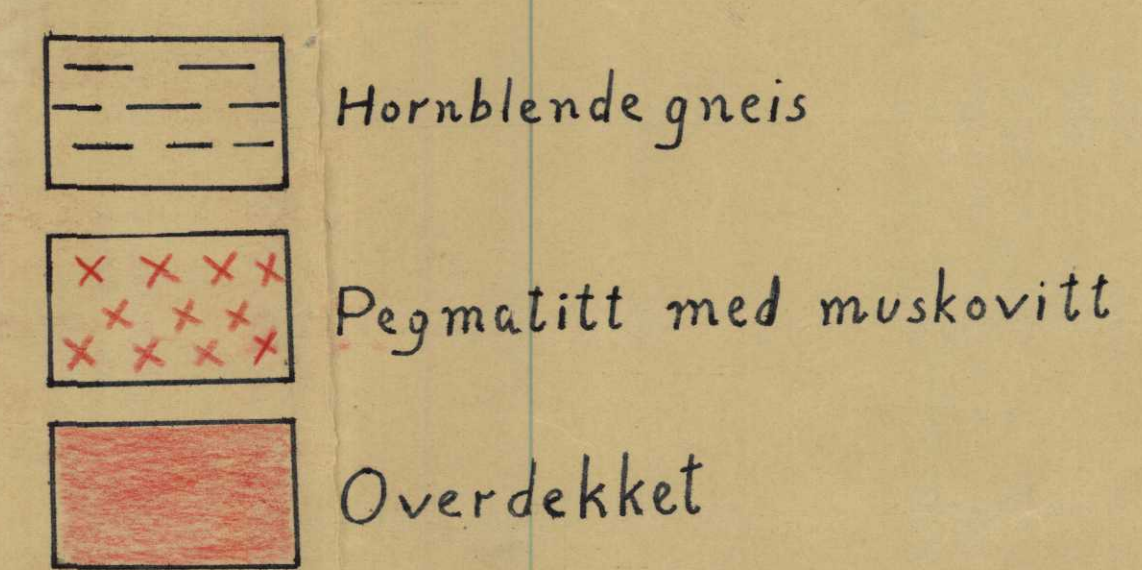 Hornblende gneis
Pegmatitt med muskovitt
Overdekket